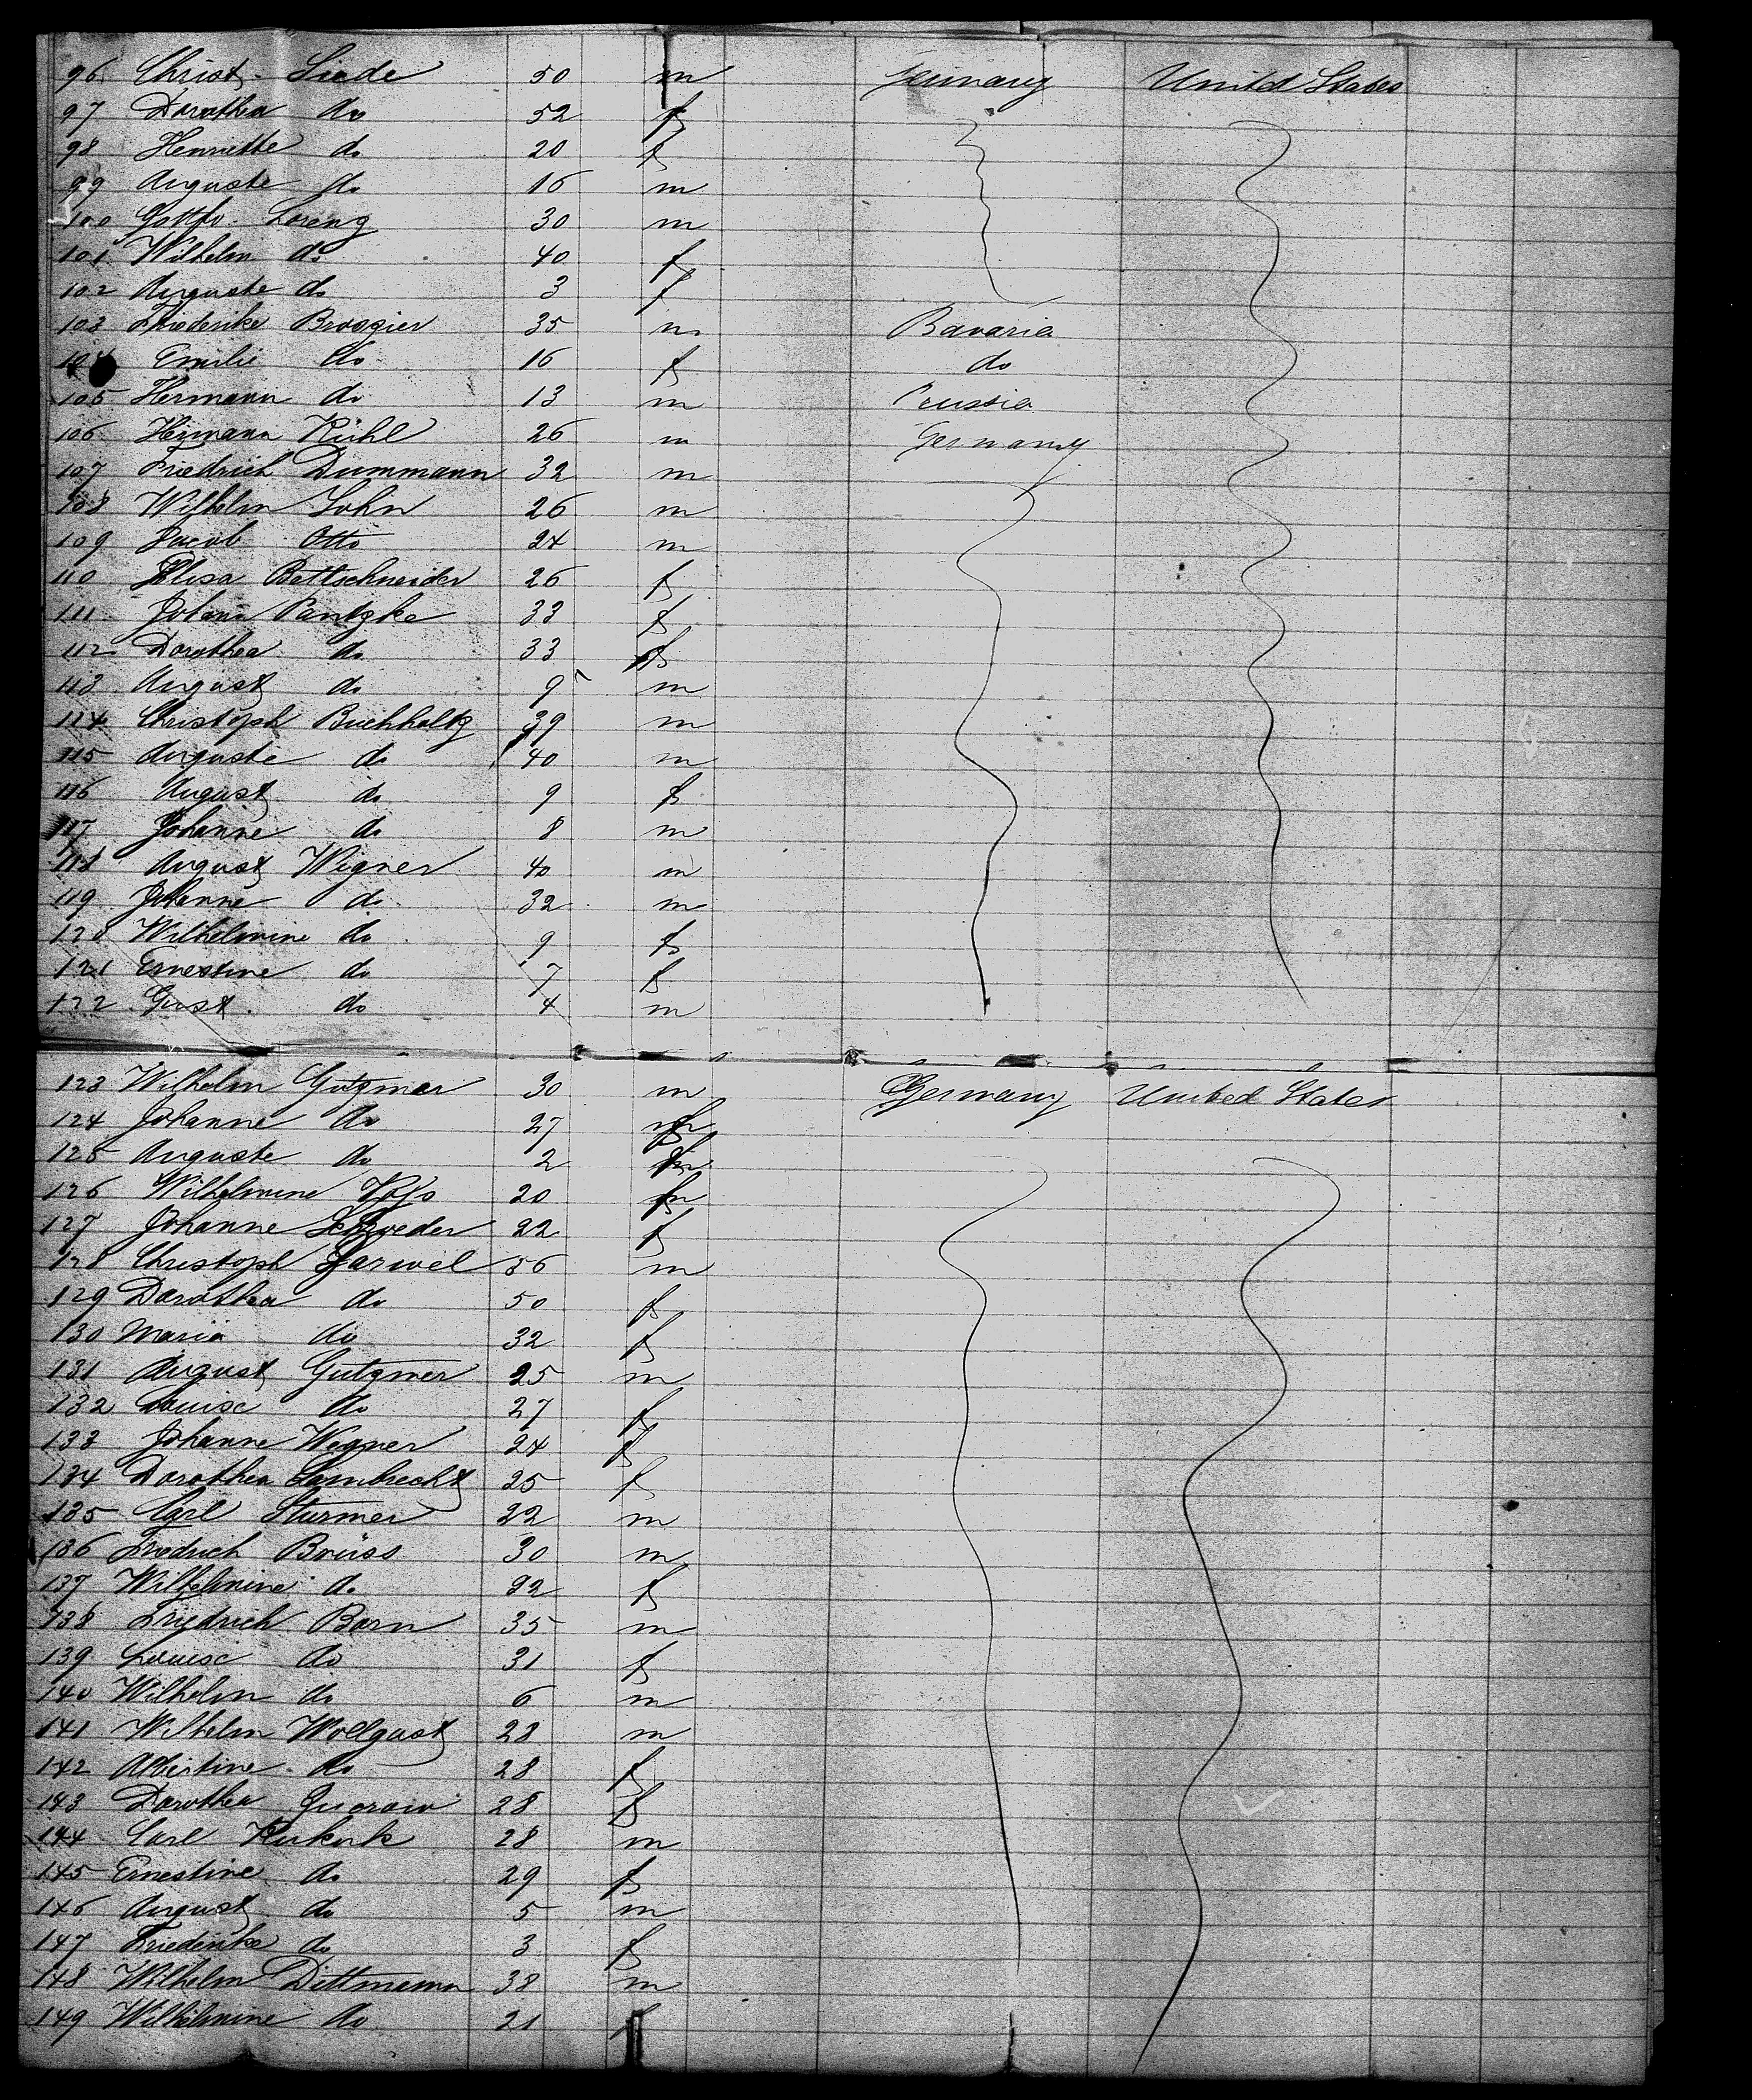 96 Christ. Liede 50 m Germany United States
97 Dorothea do 52 f
98 Henriette do 20 f
99 Auguste do 16 m
100 Gottfr. Loreng 30 m
101 Wilhelm do 40 f
102 Auguste do 3 f
103 Friederike Brosgier 35 m Bavaria
104 Emilie do 16 f do
105 Hermann do 13 m Prussia
106 Hermann Kühl 26 m Germany
107 Friedrich Dummann 32 m
108 Wilhelm Sohn 26 m
109 Jacob Otto 24 m
110 Elisa Bettschneider 26 f
111 Johana Pantzke 33 f
112 Dorothea do 33 f
113 August do 9 m
114 Christoph Buchholtz 39 m
115 Auguste do 40 m
116 August do 9 f
117 Johanne do 8 m
118 August Wegner 40 m
119 Johanne do 32 m
120 Wilhelmine do 9 f
121 Ernestine do 7 f
122 Gust. do 4 m
123 Wilhelm Gutzmer 30 m Germany United States
124 Johanne do 27 f
125 Auguste do 2 f
126 Wilhelmine Voss 20 f
127 Johanne Schroeder 22 f
128 Christoph Garwel 56 m
129 Dorothea do 50 f
130 Maria do 32 f
131 August Gutzmer 25 m
132 Louise do 27 f
133 Johanne Wegner 24 f
134 Dorothea Lambrecht 25 f
135 Carl Sturmer 22 m
136 Friedrich Brüss 30 m
137 Wilhelmine do 32 f
138 Friedrich Born 35 m
139 Louise do 31 f
140 Wilhelm do 6 m
141 Wilhelm Wollgast 28 m
142 Albertine do 28 f
143 Dorothea 28 f
144 Carl Kukuk 28 m
145 Ernestine do 29 f
146 August do 5 m
147 Friederike do 3 f
148 Wilhelm Dittmann 38 m
149 Wilhelmine do 21 f